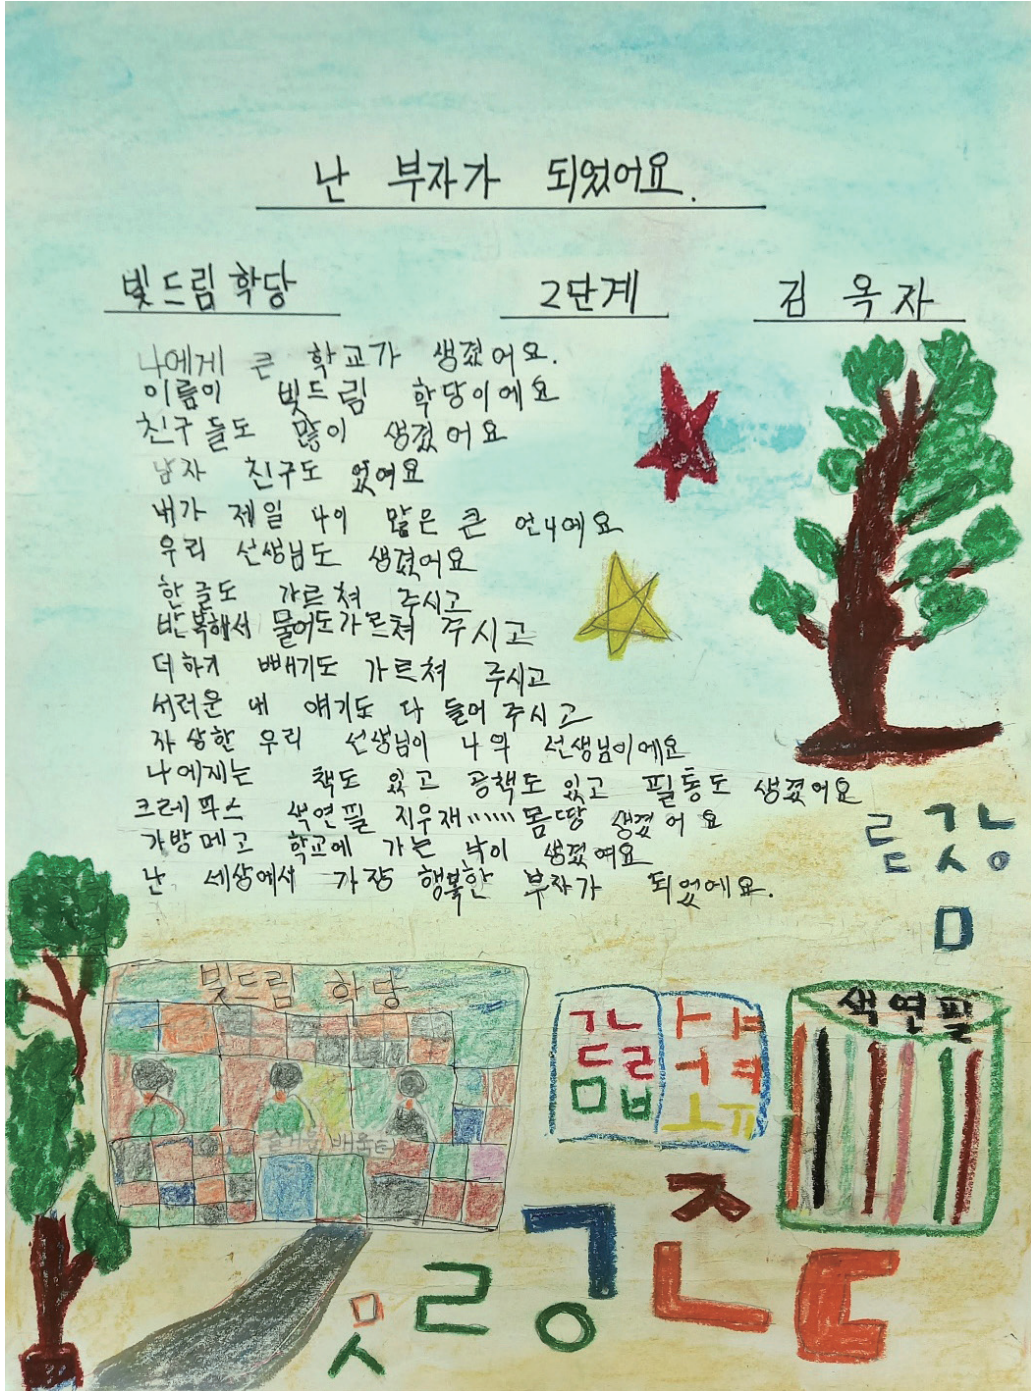 난 부자가 되었어요.
빛드림학당 2단계 김옥자
나에게 큰 학교가 생겼어요.
이름이 빛드림 학당이에요
친구들도 많이 생겼어요
남자 친구도 있어요
내가 제일 나이 많은 큰 언니에요
우리 선생님도 생겼어요
한글도 가르쳐 주시고
반복해서 물어도가르쳐 주시고
더하기 빼기도 가르쳐 주시고
서러운 내 얘기도 다 들어주시고
자상한 우리 선생님이 나의 선생님이에요
나에게는 책도 있고 공책도 있고 필통도 생겼어요
크레파스 색연필 지우재 〃〃〃 몸땅 생겼어요
가방메고 학교에 가는 낙이 생겼여요
난 세상에서 가장 행복한 부자가 되었에요.
ㄹ ㄱ ㄴ
ㄷ ㅅ ㅇ
ㅁ
빛드림 학당
색연필
ㄱ ㄴ ㅏ ㅑ
ㄷ ㄹ ㅓ ㅕ
ㅁ ㅂ ㅗ ㅠ
배움터
ㅈ
ㅁ ㄹ ㄱ ㄴ ㄷ
ㅅ ㅇ